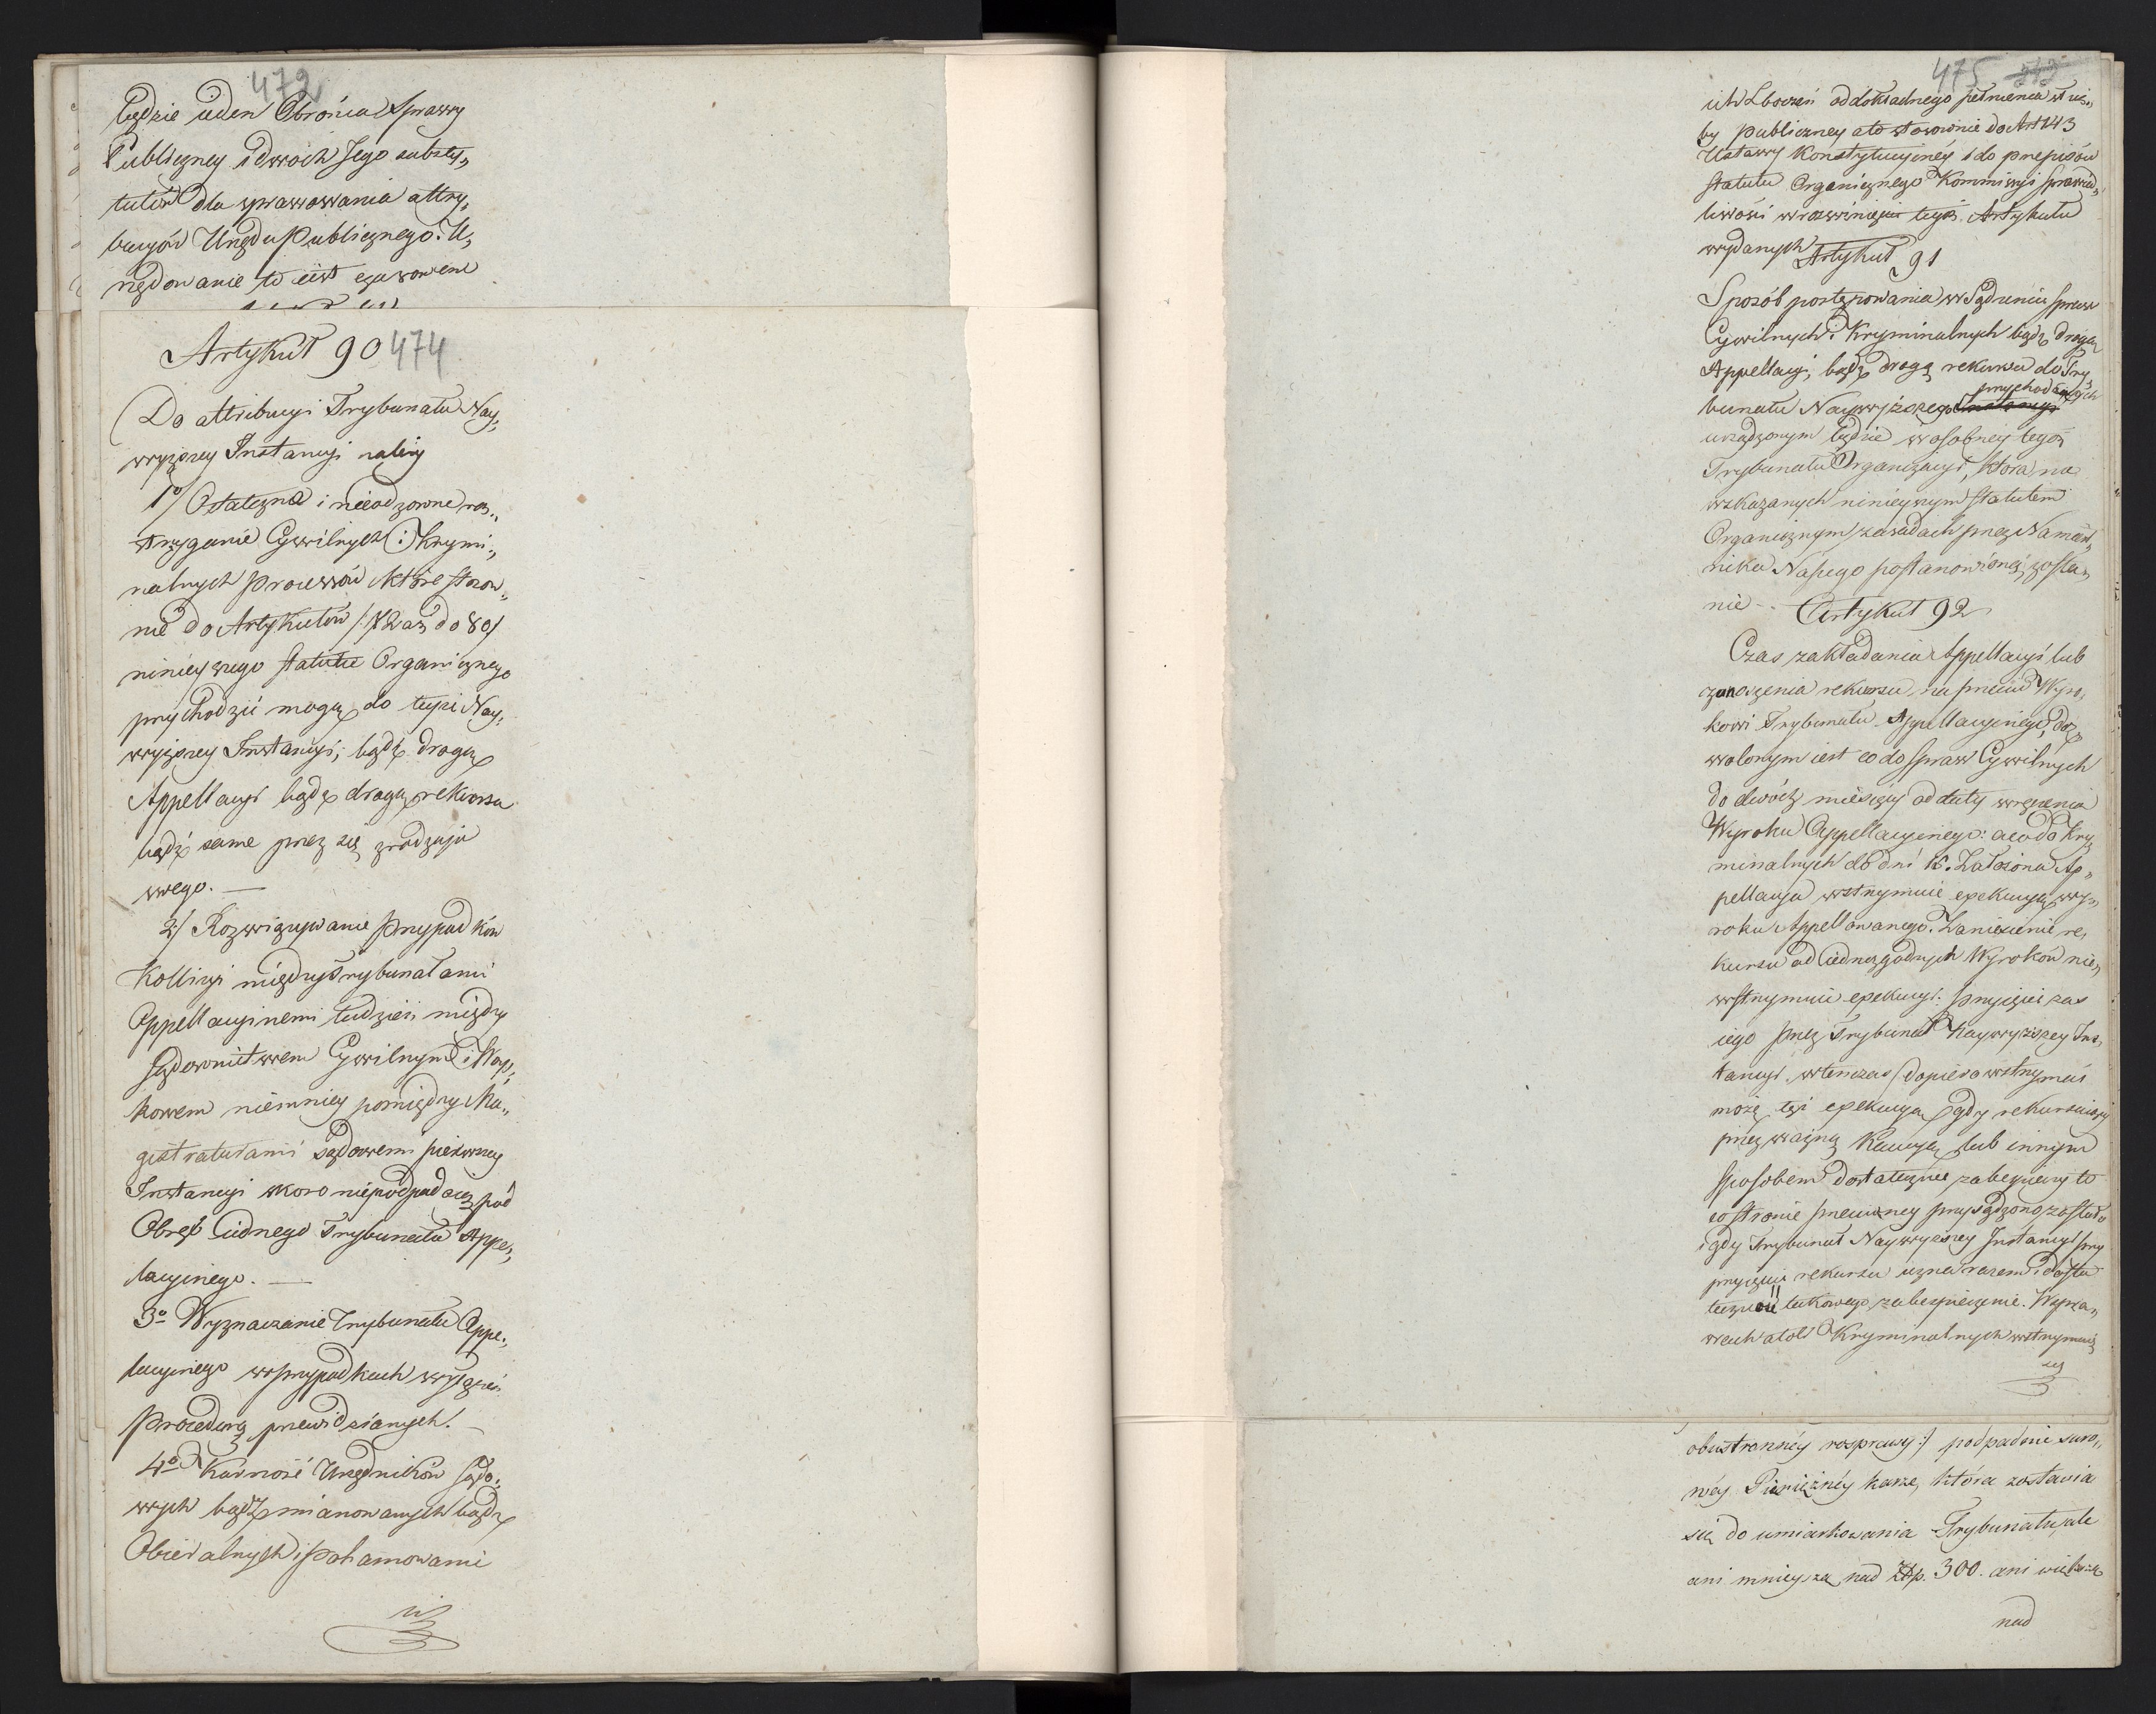 472
będzie ieden Obrońca Sprawy
Publiczney i dwóch Jego substy„
tutów dla sprawowania attry„
bucyów Urzędu Publicznego. U„
rzędowanie to iest czasowem
Artykuł 90 474
Do attribucyi Trybunału Nay„
wyższey Instancyi należy
1º/ Ostateczne i nieodzowne roz„
strzyganie Cywilnych i Krymi„
nalnych Processów które stosow„
nie do Artykułów /:72 aż do 80/
ninieyszego statutu Organicznego
przychodzić mogą do teyże Nay„
wyższey Instancyi, bądź drogą
Appellacyi bądź drogą rekursu
bądź same przez się z rodzaju
swego. —
2/ Rozwiązywanie Przypadków
Kollizyi między Trybunałami
Appellacyinemi tudzież między
Sądownictwem Cywilnym i Woy„
skowem niemniey pomiędzy Ma„
gistraturami sądowemi pierwszey
Instancyi skoro niepodpadaią pod
Obręb iednego Trybunału Appel„
lacyinego. —
3º Wyznaczanie Trybunału Appel„
lacyinego w przypadkach
Procedurą przewidzianych. —
4º Karność Urzędników Sądo„
wych bądź mianowanych bądź
Obieralnych i pohamowanie
475
ich Zboczeń od dokładnego pełnienia służ„
by Publiczney a to stosownie do Art 143
Ustawy Konstytucyiney i do przepisów
Statutu Organicznego Kommissyi Sprawied„
liwości w rozwinięciu tegoż Artykułu
wydanych
Artykuł 91
Sposób postępowania w Sądzeniu spraw
Cywilnych i Kryminalnych bądź drogą
Appellacyi, bądź drogą rekursu do Try„
przychodzących
bunału Naywyższego
urządzonym będzie w osobney tegoż
Trybunału Organizacyi, która na
wskazanych ninieyszym Statutem
Organicznym zasadach przez Namiest„
nika Naszego postanowioną zosta„
nie. Artykuł 92
Czas zakładania Appellacyi lub
zanoszenia rekursu na przeciw Wyro„
kowi Trybunału Appellacyinego, doz„
wolonym iest co do Spraw Cywilnych
do dwóch miesięcy od daty wręczenia
Wyroku Appellacyinego: a co do Kry„
minalnych do dni 16. Założona Ap„
pellacya wstrzymuie exekucyą wy„
roku Appellowanego. Zaniesienie re„
kursu od iednozgodnych Wyroków nie„
wstrzymuie exekucyi: przyięcie zas
iego przez Trybunał Naywyższey Ins„
tancyi, wtenczas dopiero wstrzymać
może tęż exekucyą gdy rekursuiący
przez ważną Kaucyą lub innym
sposobem dostatecznie zabezpieczy to
co stronie przeciwney przysądzono zostało
i gdy Trybunał Naywyższey Instancyi przy
przyięciu rekursu uzna razem i dosta„
teczność takowego zabezpieczenia. W spra„
wach atoli Kryminalnych wstrzymuie
się
obustronney rosprawy:/ podpadnie suro„
wéy Pieniężnéy karze, która zostawia
się do umiarkowania Trybunału, ale
ani mnieysza nad Złp. 300. ani większa
nad